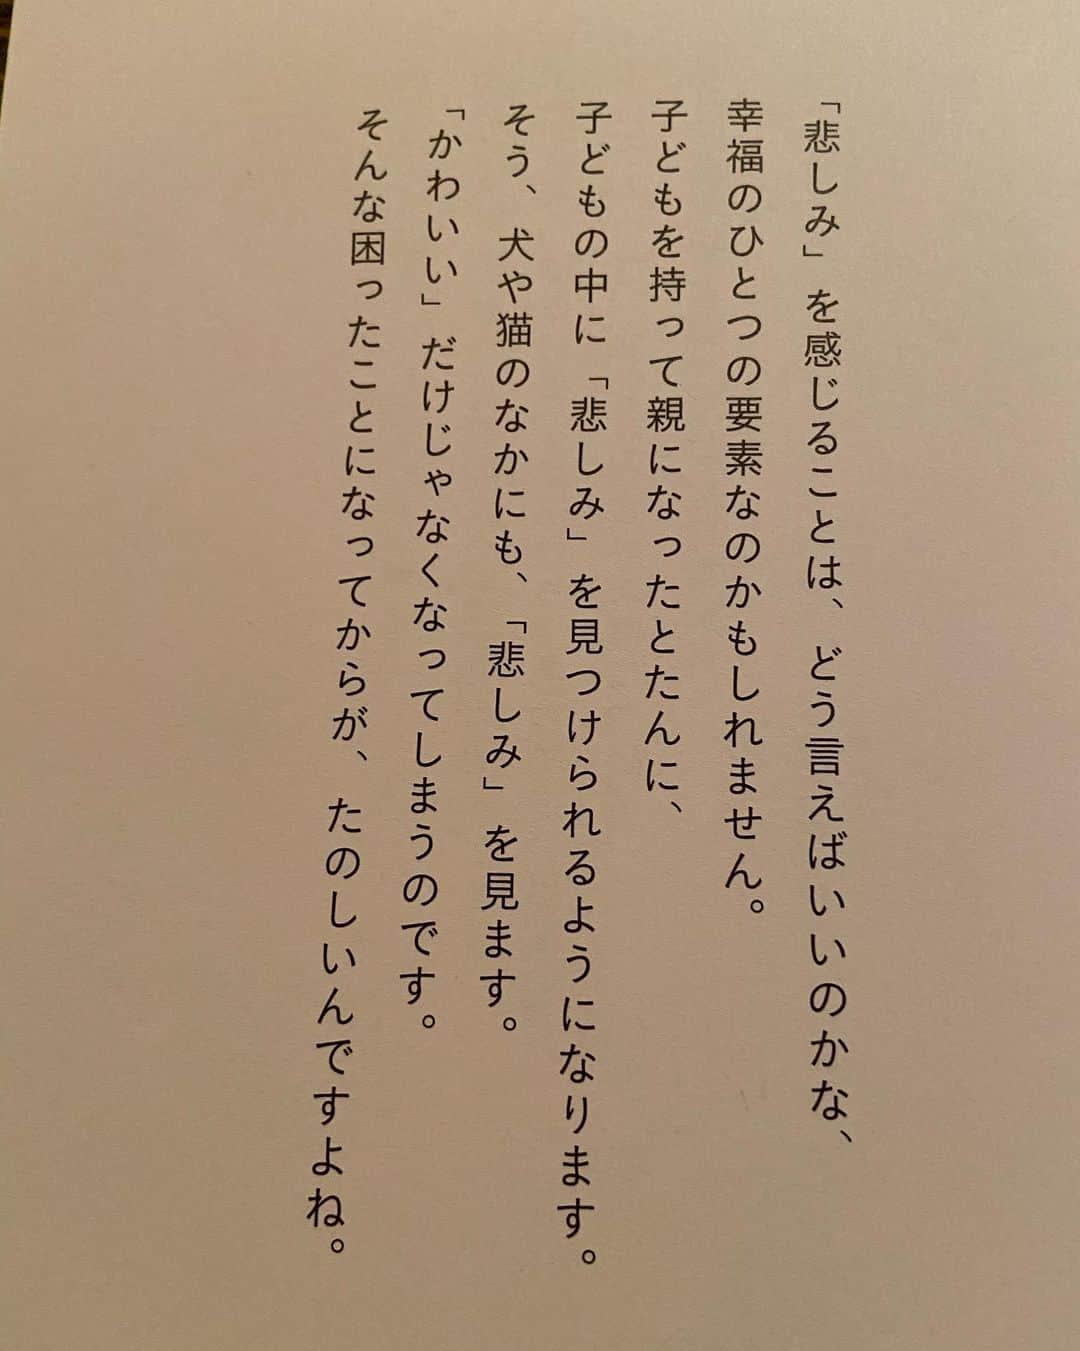 「悲しみ」を感じることは、どう言えばいいのかな、
幸福のひとつの要素なのかもしれません。
子どもを持って親になったとたんに、
子どもの中に「悲しみ」を見つけられるようになります。
そう、犬や猫のなかにも、「悲しみ」を見ます。
「かわいい」だけじゃなくなってしまうのです。
そんな困ったことになってからが、たのしいんですよね。